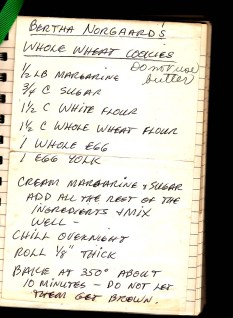 BERTHA NORGAARD'S
WHOLE WHEAT COOKIES
Do not use
butter
1/2 LB MARGARINE
3/4 C SUGAR
1 1/2 C WHITE FLOUR
1 1/2 C WHOLE WHEAT FLOUR
1 WHOLE EGG
1 EGG YOLK
CREAM MARGARINE & SUGAR
ADD ALL THE REST OF THE
INGREDIENTS & MIX
WELL -
CHILL OVERNIGHT
ROLL 1/8" THICK
BAKE AT 350° ABOUT
10 MINUTES - DO NOT LET
THEM GET BROWN.